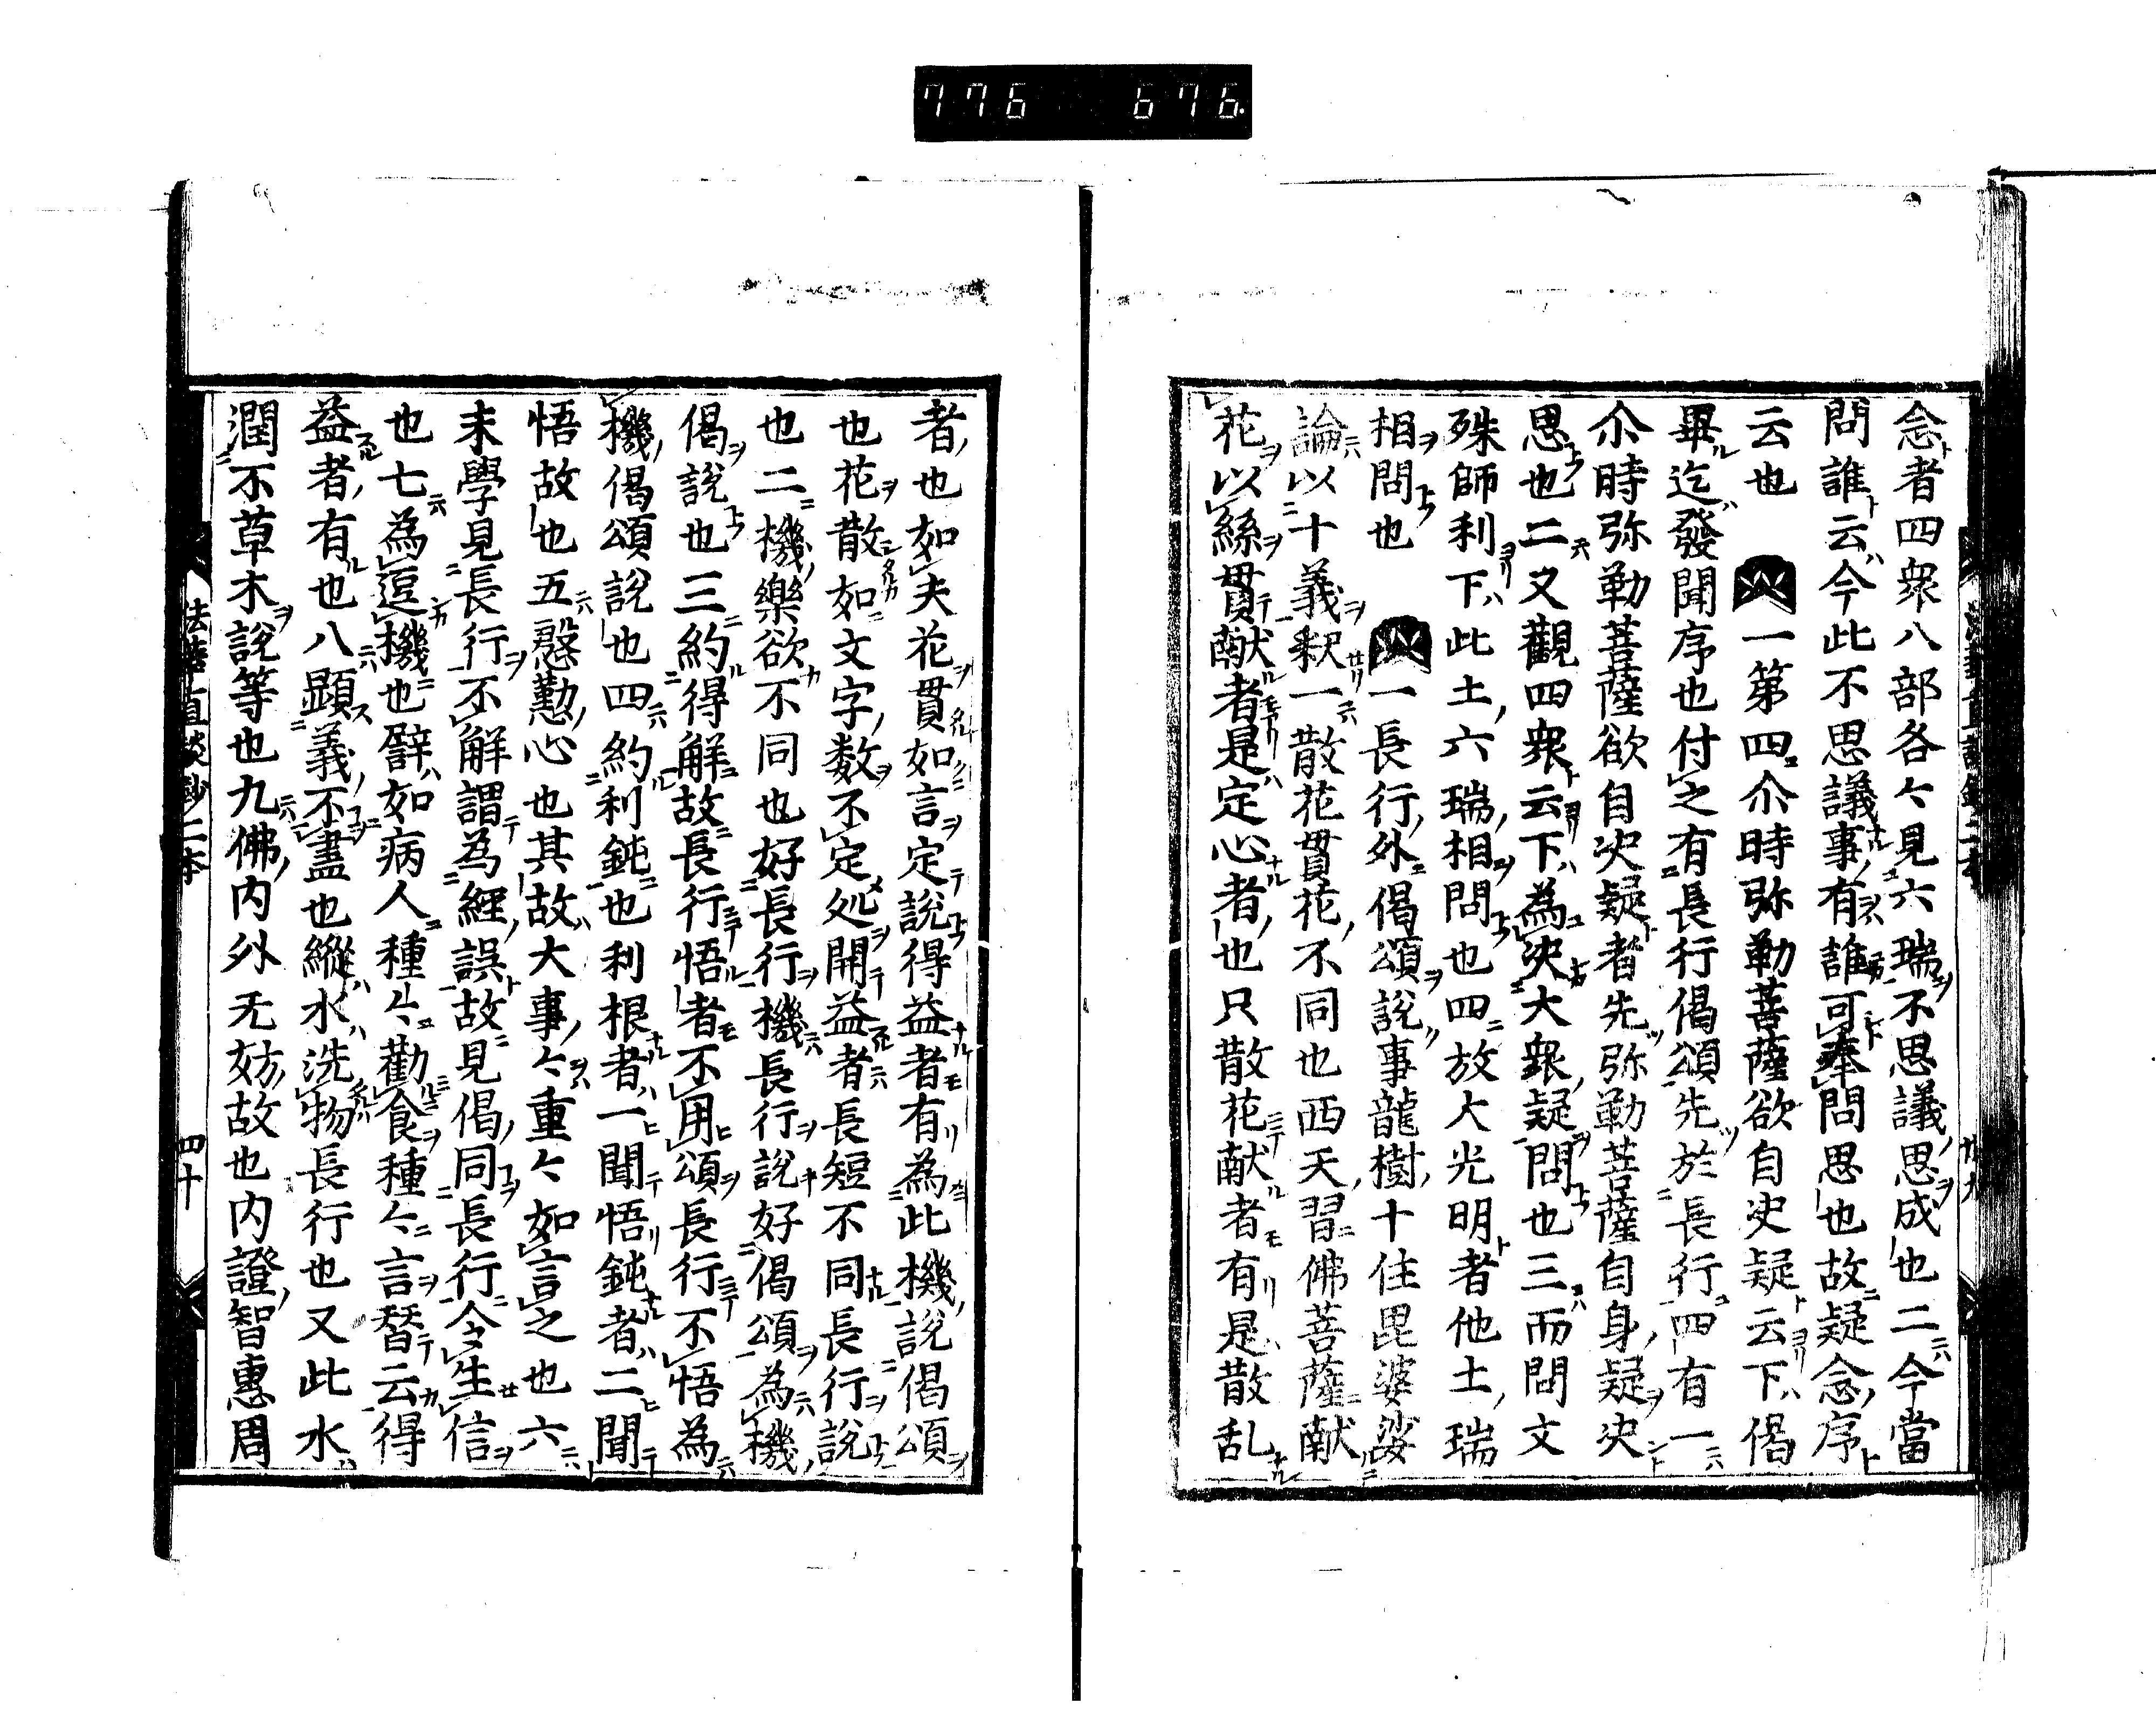 776 676
念者四衆八部各々見六瑞不思議思成也二今當
問誰云今此不思議事有誰可奉問思也故疑念序
云也 一第四尒時弥勒菩薩欲自决疑云下偈
畢迄發聞序也付之有長行偈頌先於長行四有一
尒時弥勒菩薩欲自决疑者先弥勒菩薩自身疑决
思也二又觀四衆云下為决大衆疑問也三而問文
殊師利下此土六瑞相問也四放大光明者他土瑞
相問也 一長行外偈頌説事龍樹十住毘婆娑
論以十義釈一散花貫花不同也西天習佛菩薩献
花以絲貫献者是定心者也只散花献者有是散乱
者也如夫花貫如言定説得益者有為此機説偈頌
也花散如文字数不定処開益者長短不同長行説
也二機樂欲不同也好長行機長行説好偈頌為機
偈説也三約得解故長行悟者不用頌長行不悟為
機偈頌説也四約利鈍也利根者一聞悟鈍者二聞
悟故也五慇懃心也其故大事々重々如言之也六
末學見長行不解謂為經誤故見偈同長行令生信
也七為逗機也辟如病人種々勸食種々言替云得
益者有也八顕義不盡也縱水洗物長行也又此水
潤不草木説等也九佛内外无妨故也内證智惠周
法華直談鈔二本 四十